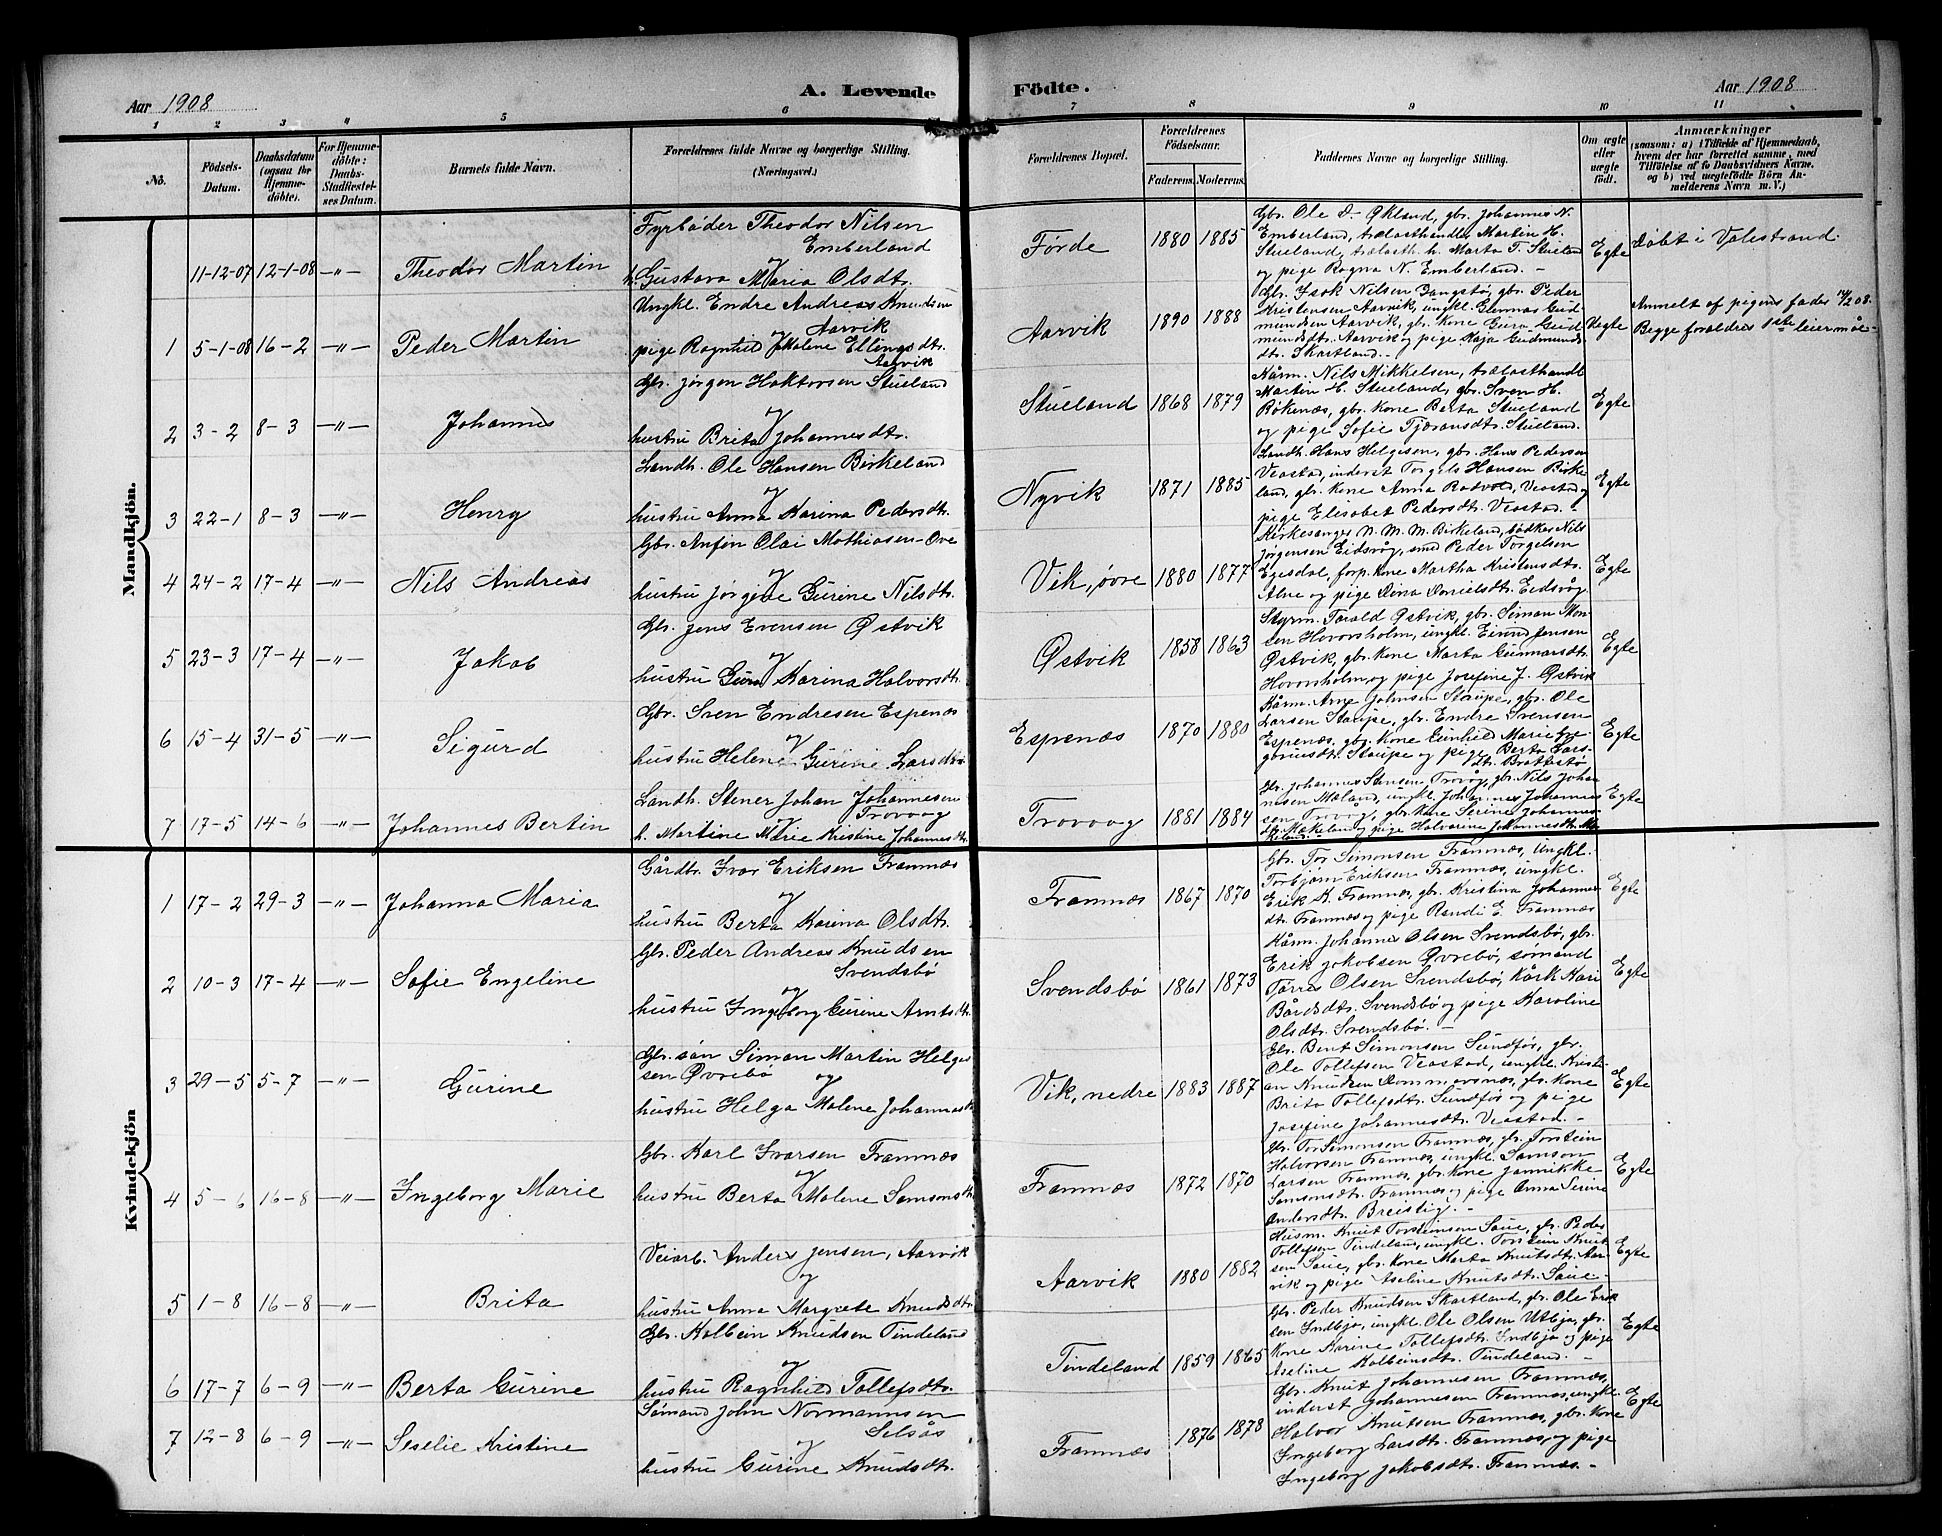 Aar 1908
A. Levende Födte.
Aar 1908
1 2 3 4 5 6 7 8 9 10 11
No.
Födsels-
Datum.
Daabsdatum
(ogsaa for
Hjemme-
döbte).
For Hjemme-
döbte:
Daabs-
Stadfæstel-
ses Datum.
Barnets fulde Navn.
Forældrenes fulde Navne og borgerlige Stilling.
(Næringsvei.)
Forældrenes Bopæl.
Forældrenes
Födselsaar.
Faderens. Moderens.
Faddernes Navne og borgerlige Stilling.
Om ægte
eller
uægte
födt.
Anmærkninger
(saasom: a) i Tilfælde af Hjemmedaab,
hvem der har forrettet samme, med
Tilföielse af to Daabsvidners Navne.
og b) ved uægtefödte Börn An-
melderens Navn m. V.)
Mandkjön.
11-12-07 12-1-08 -"- Theodor Martin
Fyrbøder Theodor Nilsen
Emberland
og
h. Gustava Maria Olsdtr.
Førde 1880 1885
Gbr. Ole D- Økland, gbr. Johannes N.
Emberland, trælasthandler Martin H.
Stueland, trælasth. h. Marta T. Stueland
og pige Ragna N. Emberland. -
Egte
Døbt i Valestrand.
1 5-1-08 16-2 -"- Peder Martin
Ungkl. Endre Andreas Knudsen
Aarvik
og
pige Ragnhild Malene Ellingsdtr.
Aarvik
Aarvik 1890 1888
Gbr. Isak Nilsen Gangstø, gbr. Peder
Kristensen Aarvik, ungkl. Gunnas Gud
mundsen Aarvik, gbr. kone Guro Gud
mundsdtr. Aarvik og pige Kaja Gudmunds
dtr. Skartland. -
Uegte
Anmelt af pigens fader 14/2 08.
Begge forældres 1ste leiermaal
2 3-2 8-3 -"- Johannes
Gbr. Jørgen Haktorsen Stueland
og
hustru Brita Johannesdtr.
Stueland 1868 1879
Kårm. Nils Mikkelsen, trælasthandl.
Martin H. Stueland, gbr. Sven H.
Røkenæs, gbr. kone Berta Stueland
og pige Sofie Tjæransdtr. Stueland.
Egte
3 22-1 8-3 -"- Henry
Landh. Ole Hansen Birkeland
og
hustru Anna Karina Pedersdtr.
Nyvik 1871 1885
Landh. Hans Helgesen, gbr. Hans Pedersen
Veastad, inderst Torgils Hansen Birke
land, gbr. kone Anna Rødvold, Veastad og
pige Elisabet Pedersdtr. Veastad. -
Egte
4 24-2 17-4 -"- Nils Andreas
Gbr. Anfin Olai Mathiasen-Ove
og
hustru Jørgine Gurine Nilsdtr.
Vik, øvre 1880 1877
Kirkesanger N. M. M. Birkeland, bødker Nils
Jørgensen Eidsvåg, smed Peder Torgelsen
Egesdal, forp. kone Martha Kristensdtr.
Alne og pige Dina Danielsdtr. Eidsvåg
Egte
5 23-3 17-4 -"- Jakob
Gbr. Jens Evensen Østvik
og
hustru Guro Karina Halvorsdtr.
Østvik 1858 1863
Styrm. Tarald Østvik, gbr. Simon Mon
sen Hovonsholm, ungkl. Eivind Jensen
Østvik, gbr. kone Marta Gunnarsdtr.
Hovonsholm og pige Josefine J. Østvik
Egte
6 15-4 31-5 -"- Sigurd
Gbr. Sven Endresen Espenæs
og
hustru Helene Gurine Larsdtr.
Espenæs 1870 1880
Kårm. Arne Johnsen Staupe, gbr. Ole
Larsen Staupe, gbr. Endre Svensen
Espenæs, gbr. kone Gunhild Marie Gre
goriusdtr. Staupe og pige Berta Lars-
dtr. Brattestø
Egte
7 17-5 14-6 -"- Johannes Bertin
Landh. Stener Johan Johannesen
Trovaag
h. Martine Marie Kristine Johannesdtr.
Trovaag 1881 1884
Gbr. Johannes Stensen, Trovåg, gbr. Nils Johan
nesen Maland, ungkl. Johannes Johannes
sen Trovåg, gbr. kone Serine Johannes
dtr. Mækeland og pige Halvarine Johannesdtr. Mæ
keland. -
Egte
Kvindekjön
1 17-2 29-3 -"- Johanna Maria
Gårdbr. Ivar Eriksen Framnæs
og
hustru Berta Karina Olsdtr.
Framnæs 1867 1870
Gbr. Tor Simonsen Framnæs, ungkl.
Torbjørn Eriksen Framnæs, ungkl.
Erik K. Framnæs, gbr. Kristina Johannes
dtr. Framnæs og pige Randi E. Framnæs
Egte
2 10-3 17-4 -"- Sofie Engeline
Gbr. Peder Andreas Knudsen
Svendsbø
og
hustru Ingeborg Gurine Arntsdtr.
Svendsbø 1861 1873
Kårm. Johannes Olsen Svendsbø, gbr.
Erik Jakobsen Øvrebø, sømand
Tørres Olsen Svendsbø, kårk. Kari
Bårdsdtr. Svendsbø og pige Karoline
Olsdtr. Svendsbø. -
Egte
3 29-5 5-7 -"- Gurine
Gbr. søn Simon Martin Helge
sen Øvrebø og
hustru Helga Malene Johannesdtr.
Vik, nedre 1883 1887
Gbr. Bent Simonsen Sundfør, gbr.
Ole Tollefsen Veastad, ungkl. Kristi-
an Knudsen Dommersnæs, gbr. kone
Brita Tollefsdtr. Sundfør og pige
Josefine Johannesdtr. Veastad. -
Egte
4 5-6 16-8 -"- Ingeborg Marie
Gbr. Karl Ivarsen Framnæs
og
hustru Berta Malene Samsonsdtr.
Framnæs 1872 1870
Gbr. Tor Simonsen Framnæs, gbr. Torstein
Halvorsen Framnæs, ungkl. Samson
Larsen Framnæs, gbr. kone Jannikke
Samsonsdtr. Framnæs og pige Anna Serine
Andersdtr. Breistig. -
Egte
5 1-8 16-8 -"- Brita
Veiarb. Anders Jensen, Aarvik
og
hustru Anna Margrete Knudsdtr.
Aarvik 1880 1882
Husm. Knut Torsteinsen Saue, gbr. Peder
Tollefsen Tindeland, ungkl. Torstein Knut
sen Saue, gbr. kone Marta Knutsdtr. Aar
vik og pige Aseline Knutsdtr. Saue-
Egte
6 17-7 6-9 -"- Berta Gurine
Gbr. Kolbein Knudsen Tindeland
og
hustru Ragnhild Tollefsdtr.
Tindeland 1859 1865
Gbr. Peder Knudsen Skartland, gbr. Ole Erik
sen Indbjo, ungkl. Ole Olsen Utbjo, gbr.
kone Karine Tollefsdtr. Indbjo og pige
Aseline Kolbeinsdtr. Tindeland. -
Egte
7 12-8 6-9 -"- Seselie Kristine
Sømand John Normannsen
Selsås
og
hustru Gurine Knudsdtr.
Framnæs 1876 1878
Gbr. Knut Johannesen Framnæs,
inderst Johannesen Framnæs, ungkl.
Halvor Knutsen Framnæs, gbr. kone
Ingeborg Larsdtr. Framnæs, og pige
Ingeborg Jakobsdtr. Framnæs. -
Egte